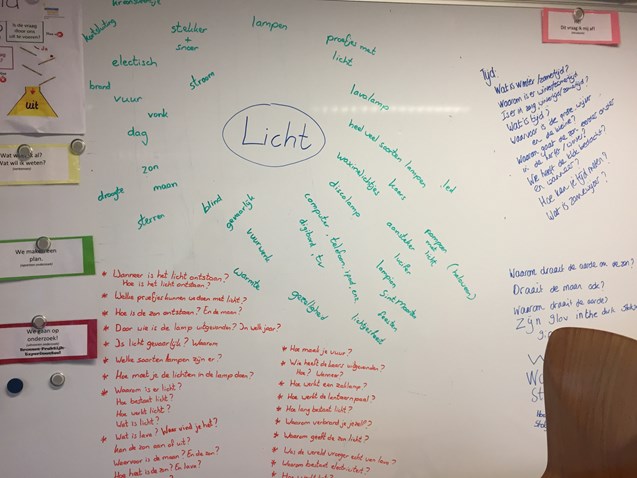 kortsluiting
stekker
+
snoer
lampen
proefjes met
licht
electisch
stroom
lavalamp
brand
vuur
vonk
heel veel soorten lampen
led
dag
Licht
waxinelichtjes
kaars
zon
discolamp
maan
droogte
sterren
blind
gevaarlijk
vuurwerk
warmte
computer, telefoon, ipad, enz.
digibord, tv
aansteker
lucifer
lampion
Sint Maarten
pompoen
met
licht
(halloween)
feesten
gezelligheid
lichtjesfeest
uit
Wat wil ik weten?
We maken een
plan.
We gaan op
onderzoek!
* Wanneer is het licht ontstaan?
Hoe is het licht ontstaan?
* Welke proefjes kunnen we doen met licht?
* Hoe is de zon ontstaan? En de maan?
* Door wie is de lamp uitgevonden? In welk jaar?
* Is licht gevaarlijk? Waarom
* Welke soorten lampen zijn er?
* Hoe moet je de lichten in de lamp doen?
* Waarom is er licht?
Hoe bestaat licht?
Hoe werkt licht?
Wat is licht?
* Wat is lava? Waar vind je het?
Kan de zon aan of uit?
Waarvoor is de maan? En de zon?
Hoe heet is de zon? En lava?
* Hoe maak je vuur?
* Wie heeft de kaars uitgevonden?
Hoe? Wanneer?
* Hoe werkt een zaklamp?
* Hoe werkt de lantaarnpaal?
* Hoe lang bestaat licht?
* Waarom verbrand je jezelf?
* Waarom geeft de zon licht?
* Was de wereld vroeger echt van lava?
* Waarom bestaat electriciteit?
Deze vraag is mij af!
Tijd:
Wat is winter/zomertijd?
Waarom is er winter/zomertijd
Wat is tijd?
Waarvoor is de grote wijzer
en de kleine?
Waarom gaat de zon eerder onder
in de herfst/winter?
Wie heeft de klok bedacht?
en wanneer?
Hoe kan je tijd meten?
Wat is zonnewijzer?
Waarom draait de aarde om de zon?
Draait de maan ook?
Waarom draait de aarde?
Zijn glow in the dark